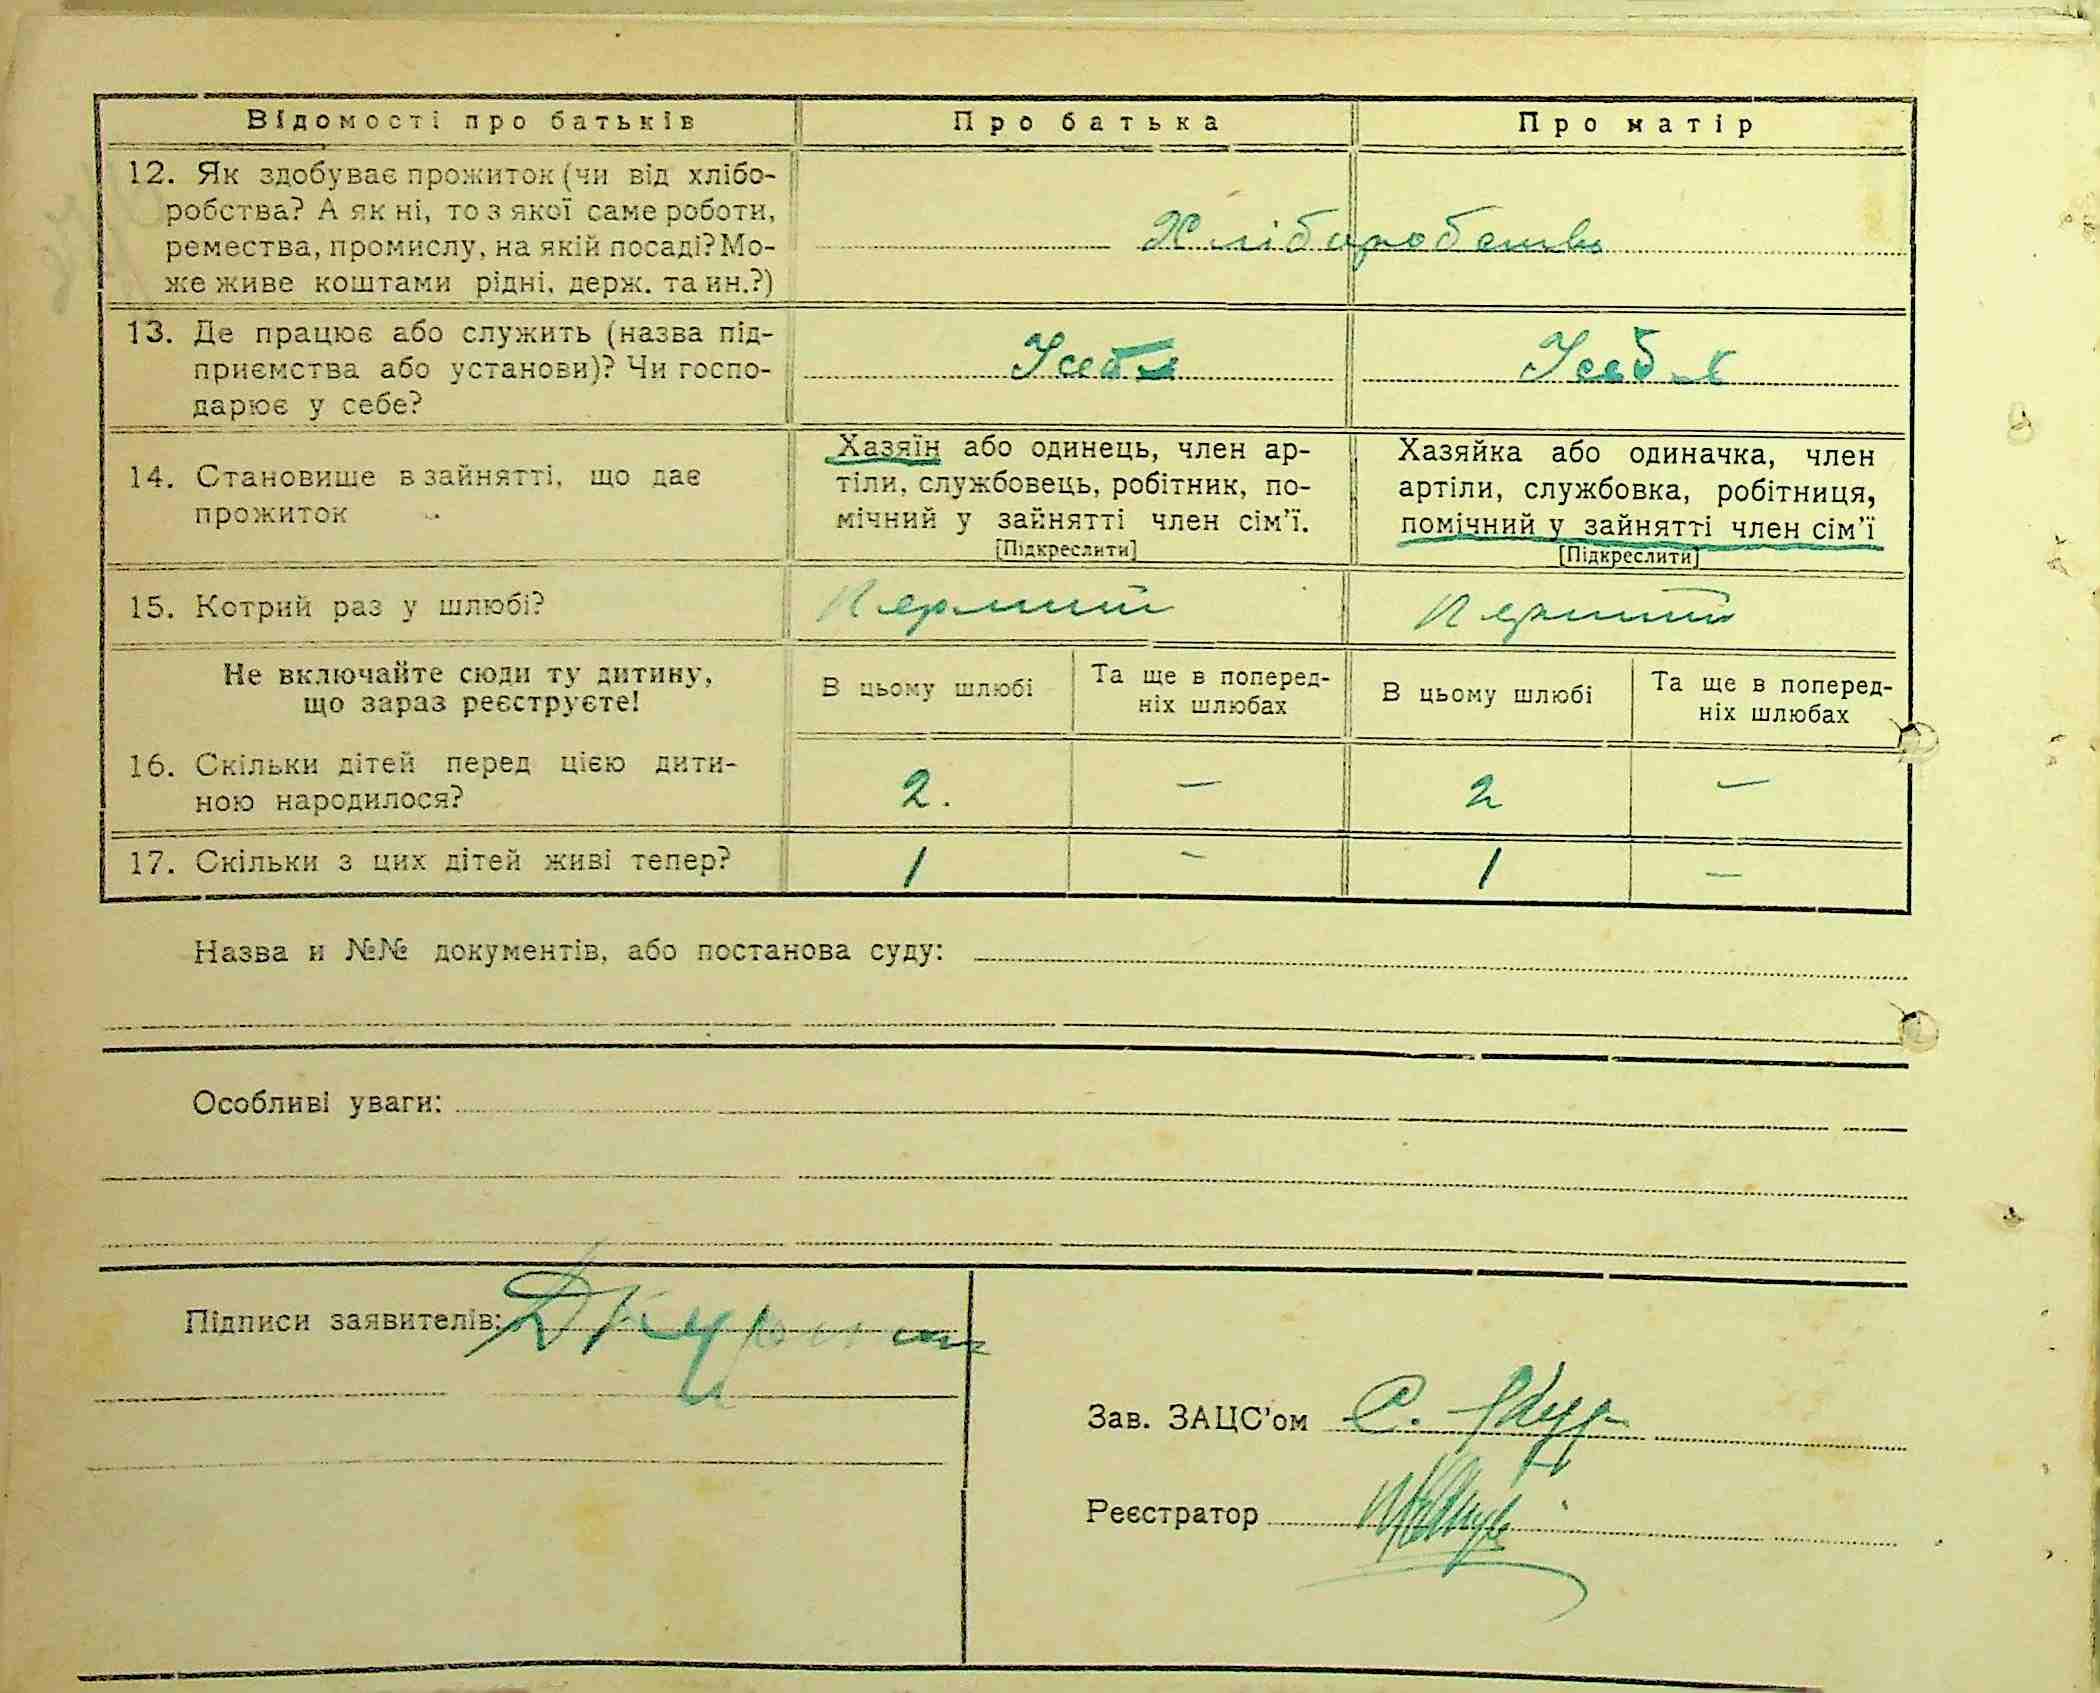 Відомості про батьків
Про батька
Про матір
12. Як здобуває прожиток (чи від хлібо-
робства? А як ні, то з якої саме роботи,
ремества, промислу, на якій посаді? Мо-
же живе коштами рідні, держ. та ин.?)
Хліборобство
13. Де працює або служить (назва під-
приємства або установи)? Чи госпо-
дарює у себе?
Усебя
Усебя
14. Становище в зайнятті, що дає
прожиток
Хазяїн або одинець, член ар-
тіли, службовець, робітник, по-
мічний у зайнятті член сім'ї.
[Підкреслити]
Хазяйка або одиначка, член
артіли, службовка, робітниця,
помічний у зайнятті член сім'ї
[Підкреслити]
15. Котрий раз у шлюбі?
Перший
Перший
Не включайте сюди ту дитину,
що зараз реєструєте!
В цьому шлюбі
Та ще в поперед-
ніх шлюбах
В цьому шлюбі
Та ще в поперед-
ніх шлюбах
16. Скільки дітей перед цією дити-
ною народилося?
2. – 2 –
17. Скільки з цих дітей живі тепер?
1 – 1 –
Назва и №№ документів, або постанова суду:
Особливі уваги:
Підписи заявителів:
Зав. ЗАЦС'ом С.
Реєстратор